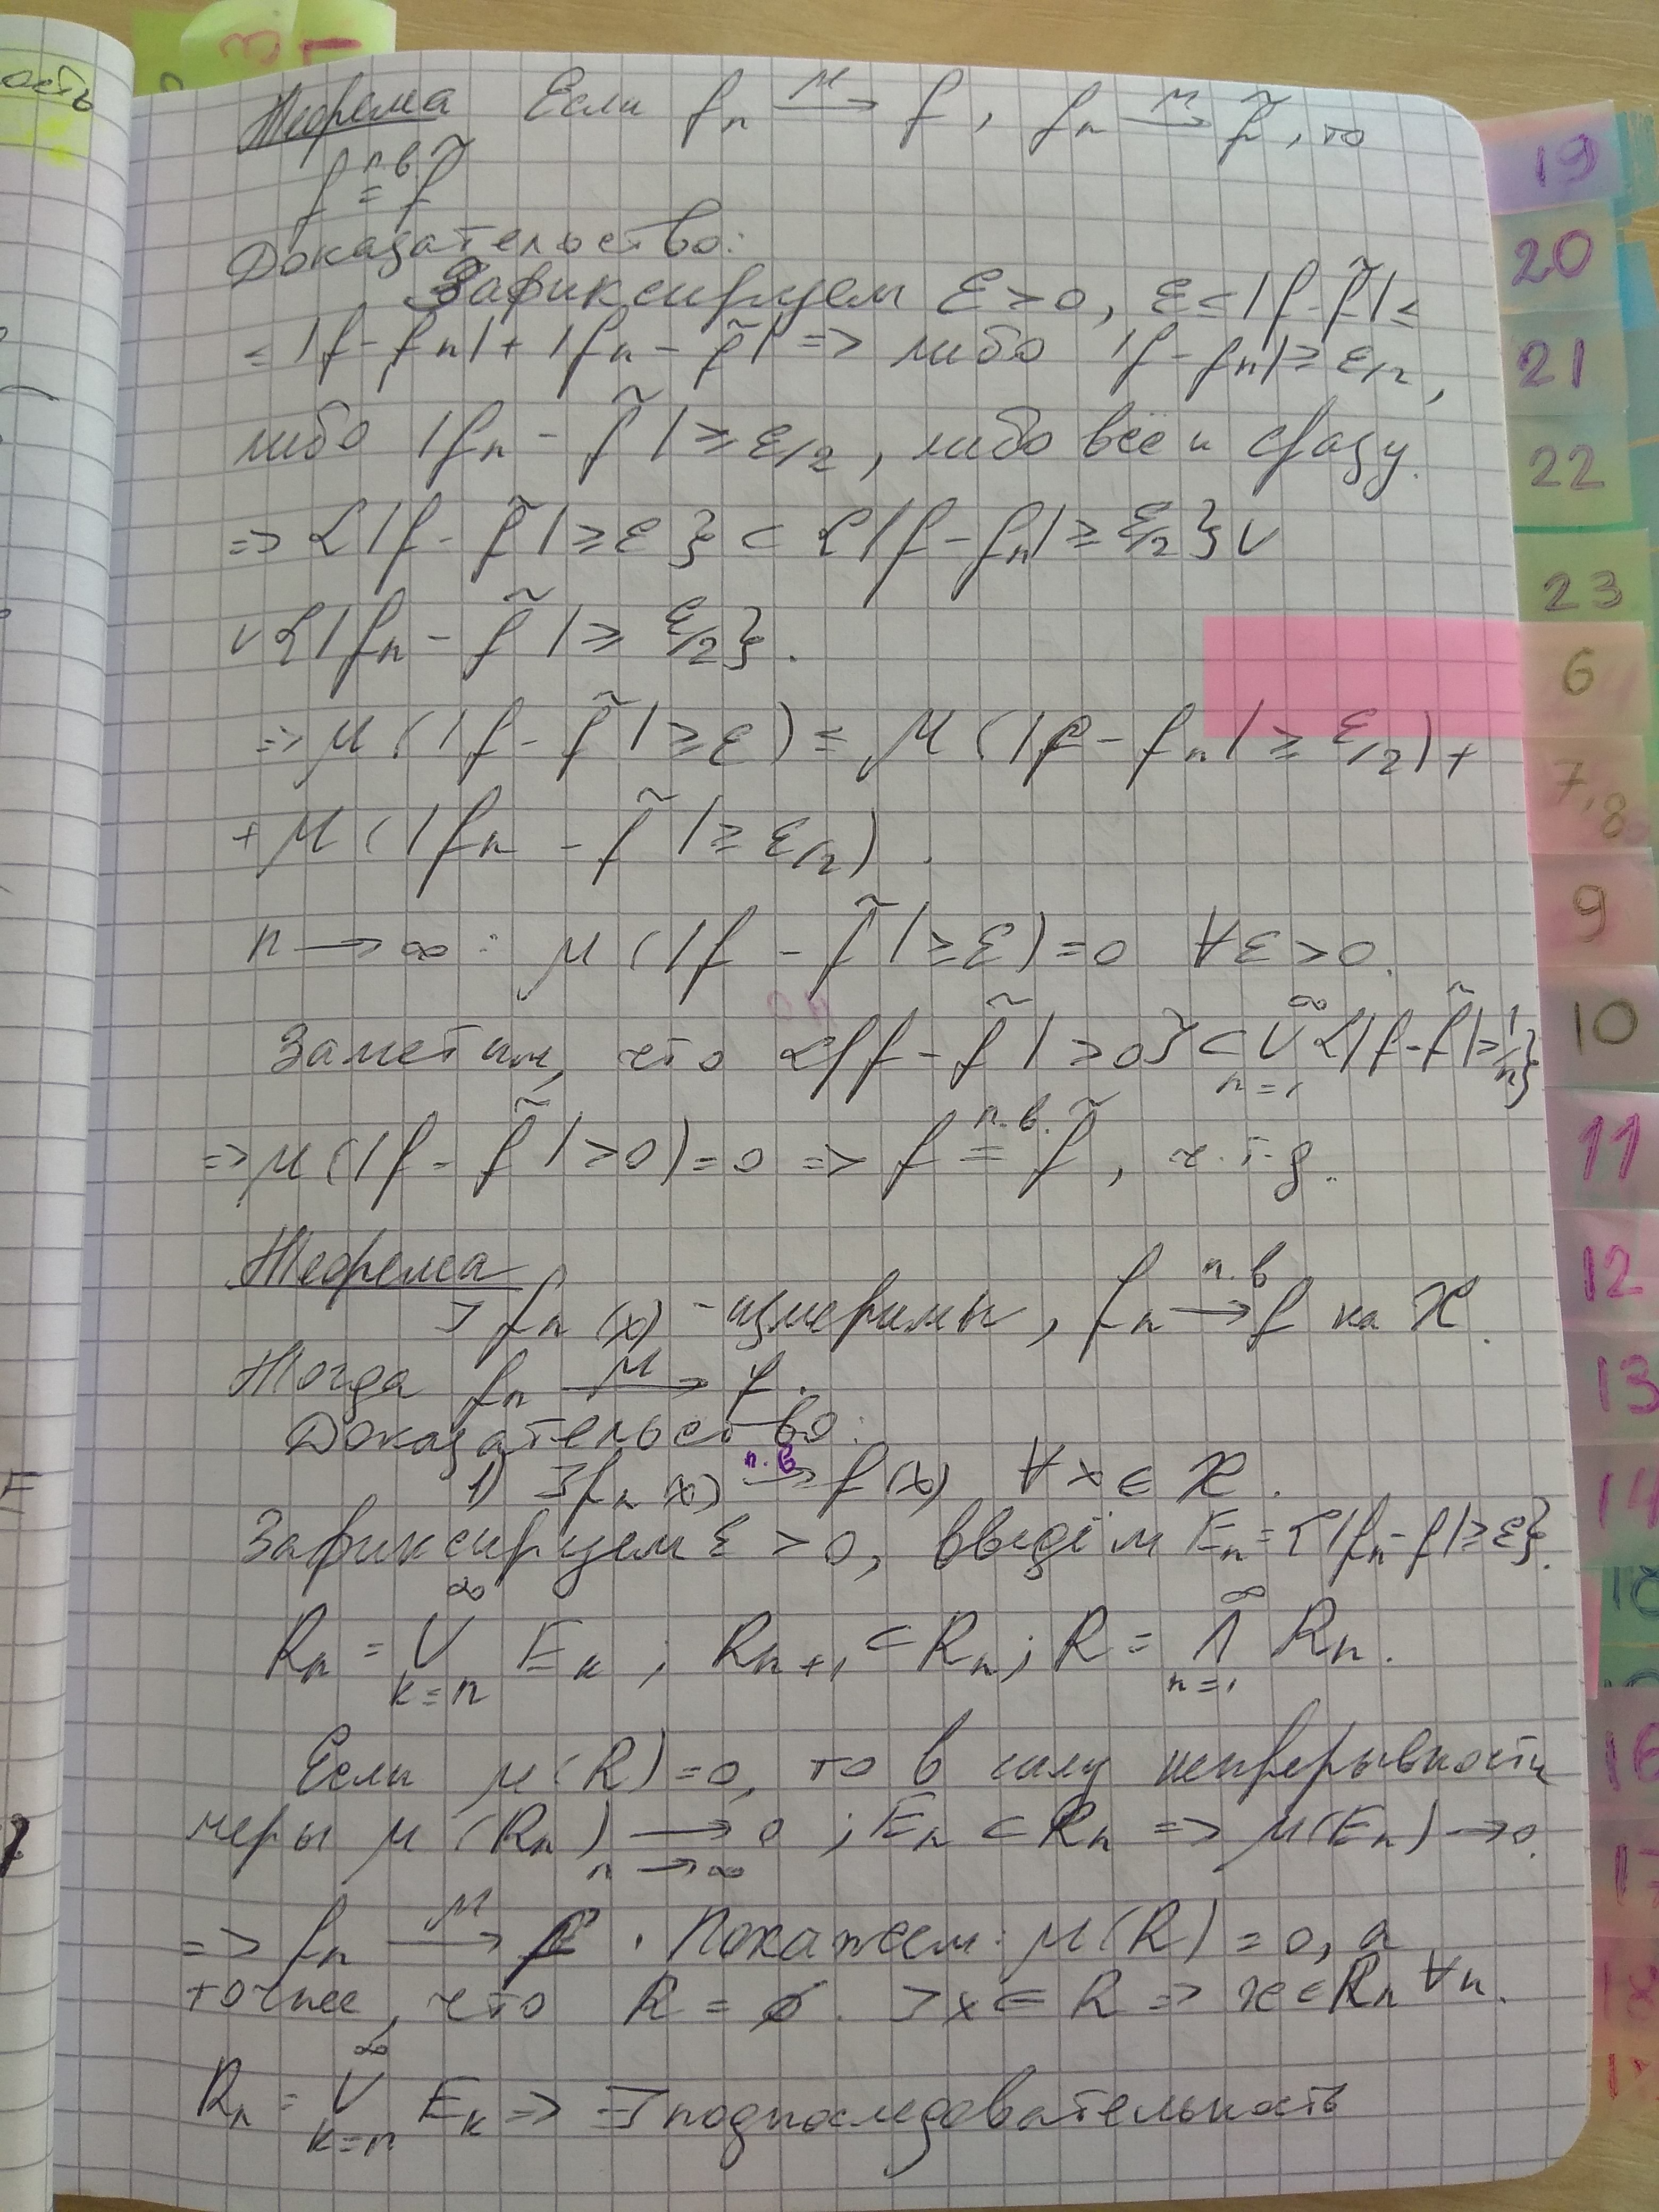 ость
Теорема Если fₙ →^μ f, fₙ →^μ f̃, то
f =^{п.в} f̃
Доказательство:
Зафиксируем ε > 0, ε ≤ |f - f̃| ≤
≤ |f - fₙ| + |fₙ - f̃| => либо |f - fₙ| ≥ ε/2,
либо |fₙ - f̃| ≥ ε/2, либо всё и сразу.
=> {|f - f̃| ≥ ε} ⊂ {|f - fₙ| ≥ ε/2} ∪
∪ {|fₙ - f̃| ≥ ε/2}.
=> μ(|f - f̃| ≥ ε) ≤ μ(|f - fₙ| ≥ ε/2) +
+ μ(|fₙ - f̃| ≥ ε/2).
n → ∞: μ(|f - f̃| ≥ ε) = 0 ∀ε > 0.
Заметим, что {|f - f̃| > 0} ⊂ ∪_{n=1}^∞ {|f - f̃| > 1/n}
=> μ(|f - f̃| > 0) = 0 => f =^{п.в.} f̃, ч.т.д.
Теорема
⊐ fₙ(x) - измеримы, fₙ →^{п.в} f на X.
Тогда fₙ →^μ f.
Доказательство:
1) ⊐ fₙ(x) →^{п.в} f(x) ∀x ∈ X.
Зафиксируем ε > 0, введём Eₙ = {|fₙ - f| ≥ ε}.
Rₙ = ∪_{k=n}^∞ Eₖ; Rₙ₊₁ ⊂ Rₙ; R = ∩_{n=1}^∞ Rₙ.
Если μ(R) = 0, то в силу непрерывности
меры μ(Rₙ) →_{n→∞} 0; Eₙ ⊂ Rₙ => μ(Eₙ) → 0.
=> fₙ →^μ f. Покажем: μ(R) = 0, а
точнее, что R = ∅. ⊐ x ∈ R => x ∈ Rₙ ∀n.
Rₙ = ∪_{k=n}^∞ Eₖ => ∃ подпоследовательность
19
20
21
22
23
6
7,8
9
10
11
12
13
14
16
17
18